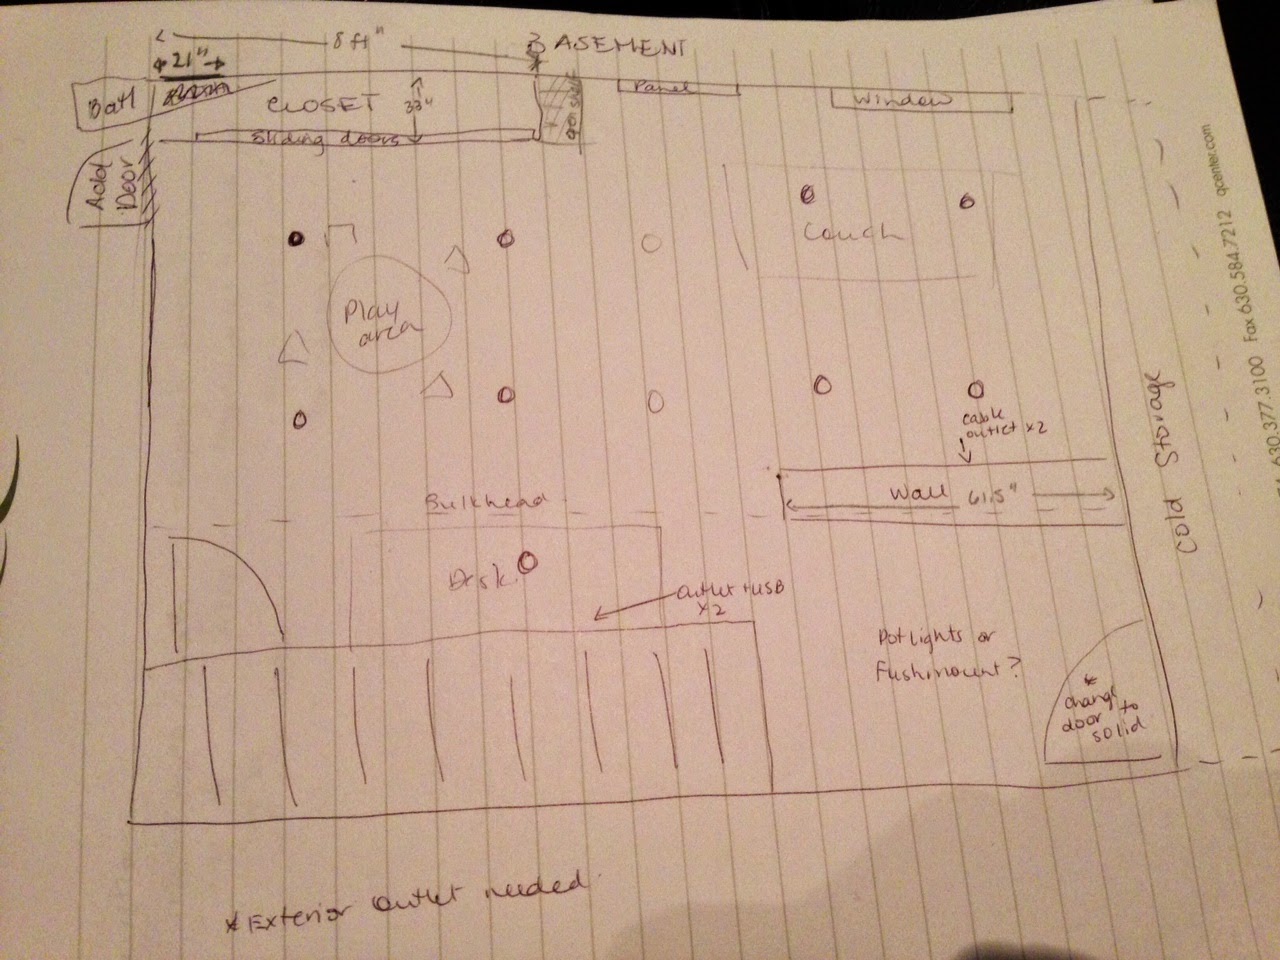 8 ft"
BASEMENT
21"
Bath
CLOSET
33"
Panel
Window
Sliding doors
Add
Door
Couch
Play
area
cable
outlet x2
Wall 61.5"
Bulkhead
Desk
outlet + USB
x2
Cold Storage
Potlights or
Fushmount?
*
change
door to
solid
* Exterior outlet needed
630.377.3100 Fax 630.584.7212 qcenter.com